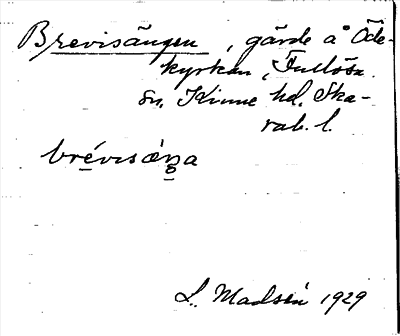 Brevisängen, gärde å Öde-
kyrkan, Fullösa
sn, Kinne hd, Ska-
rab. l.
brévisæ̀ŋa
L. Madsén 1929